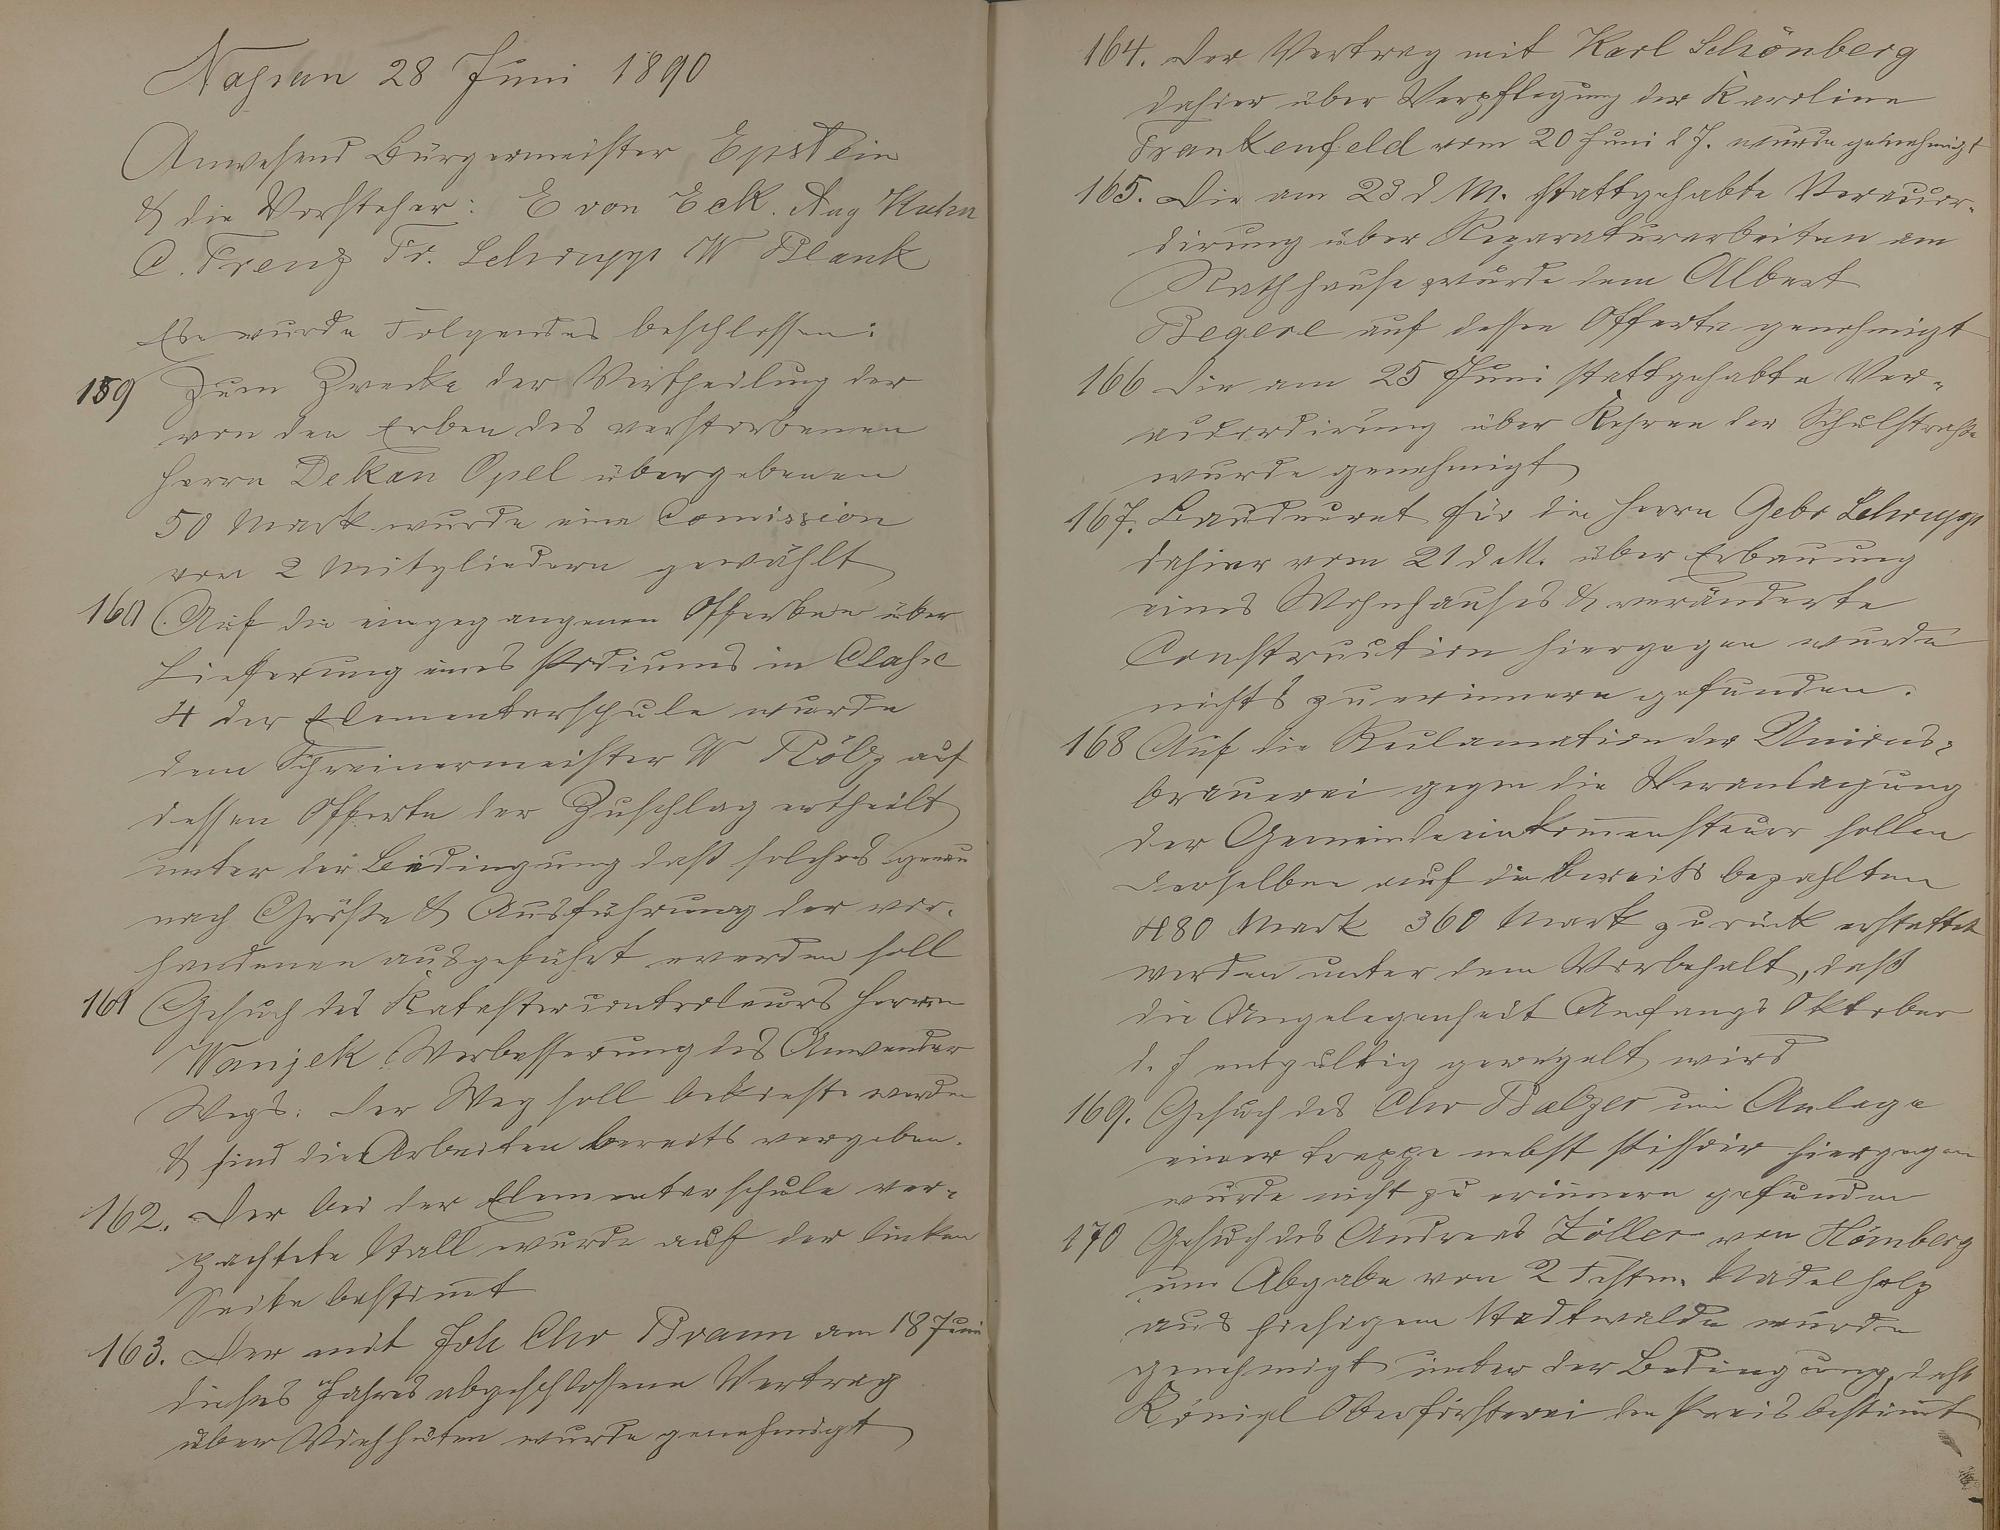 Naßau 28 Juni 1890
Anwesend Bürgermeister Epstein
& die Vorsteher: E von Eck. Aug Kuhn
C. Trenz Fr. Schrupp W Blank
Es wurde Folgendes beschlossen:
159 Zum Zwecke der Vertheilung der
von den Erben des verstorbenen
Herrn Dekan Opel übergebenen
50 Mark wurde eine Comission
von 2 Mitgliedern gewählt
160 Auf die eingegangenen Offerten über
Lieferung eines Podiums in Claße
4 der Elementarschule wurde
dem Schreinermeister W Pölz auf
dessen Offerte der Zuschlag ertheilt
unter der Bedingung daß solches genau
nach Größe & Ausführung der vor-
handenen ausgeführt werden soll
161 Gesuch des Katastercontroleurs Herrn
Wanjek Verbesserung des Anwender
Wegs. Der Weg soll bekiest werden
& sind die Arbeiten bereits vergeben.
162. Der bei der Elementarschule ver-
pachtete Stall wurde auf der linken
Seite bestimt
163. Der mit Joh Chr Braun am 18 Juni
dieses Jahres abgeschlossene Vertrag
über Viehhüten wurde genehmigt
164. Der Vertrag mit Karl Schönberg
dahier über Verpflegung der Karoline
Frankenfeld vom 20 Juni d J. wurde genehmigt
165. Die am 23 d M. stattgehabte Veraccor-
dirung über Reparaturarbeiten am
Rathhause wurde dem Albert
Begere auf dessen Offerte genehmigt
166 Die am 25 Juni stattgehabte Ver-
accordirung über Kehren der Schulstraße
wurde genehmigt
167. Baudecret für die Herrn Gebr Schrupp
dahier vom 21 d M. über Erbauung
eines Wohnhauses & veränderte
Construction hiergegen wurde
nichts zu erinnern gefunden.
168 Auf die Reclamation der Unions-
brauerei gegen die Veranlagung
der Gemeindeeinkomensteuer sollen
derselben auf die bereits bezahlten
480 Mark 360 Mark zurück erstattet
werden unter dem Vorbehalt, daß
die Angelegenheit Anfangs Oktober
d. J entgültig geregelt wird
169. Gesuch des Chr Balzer um Anlage
einer Treppe nebst Pissoir hiergegen
wurde nicht zu erinnern gefunden
170 Gesuch des Andreas Zöller von Hömberg
um Abgabe von 2 Festm. Nadelholz
aus hiesigem Stadtwalde wurde
genehmigt unter der Bedingung, daß
Königl Oberförsterei den Preis bestimt